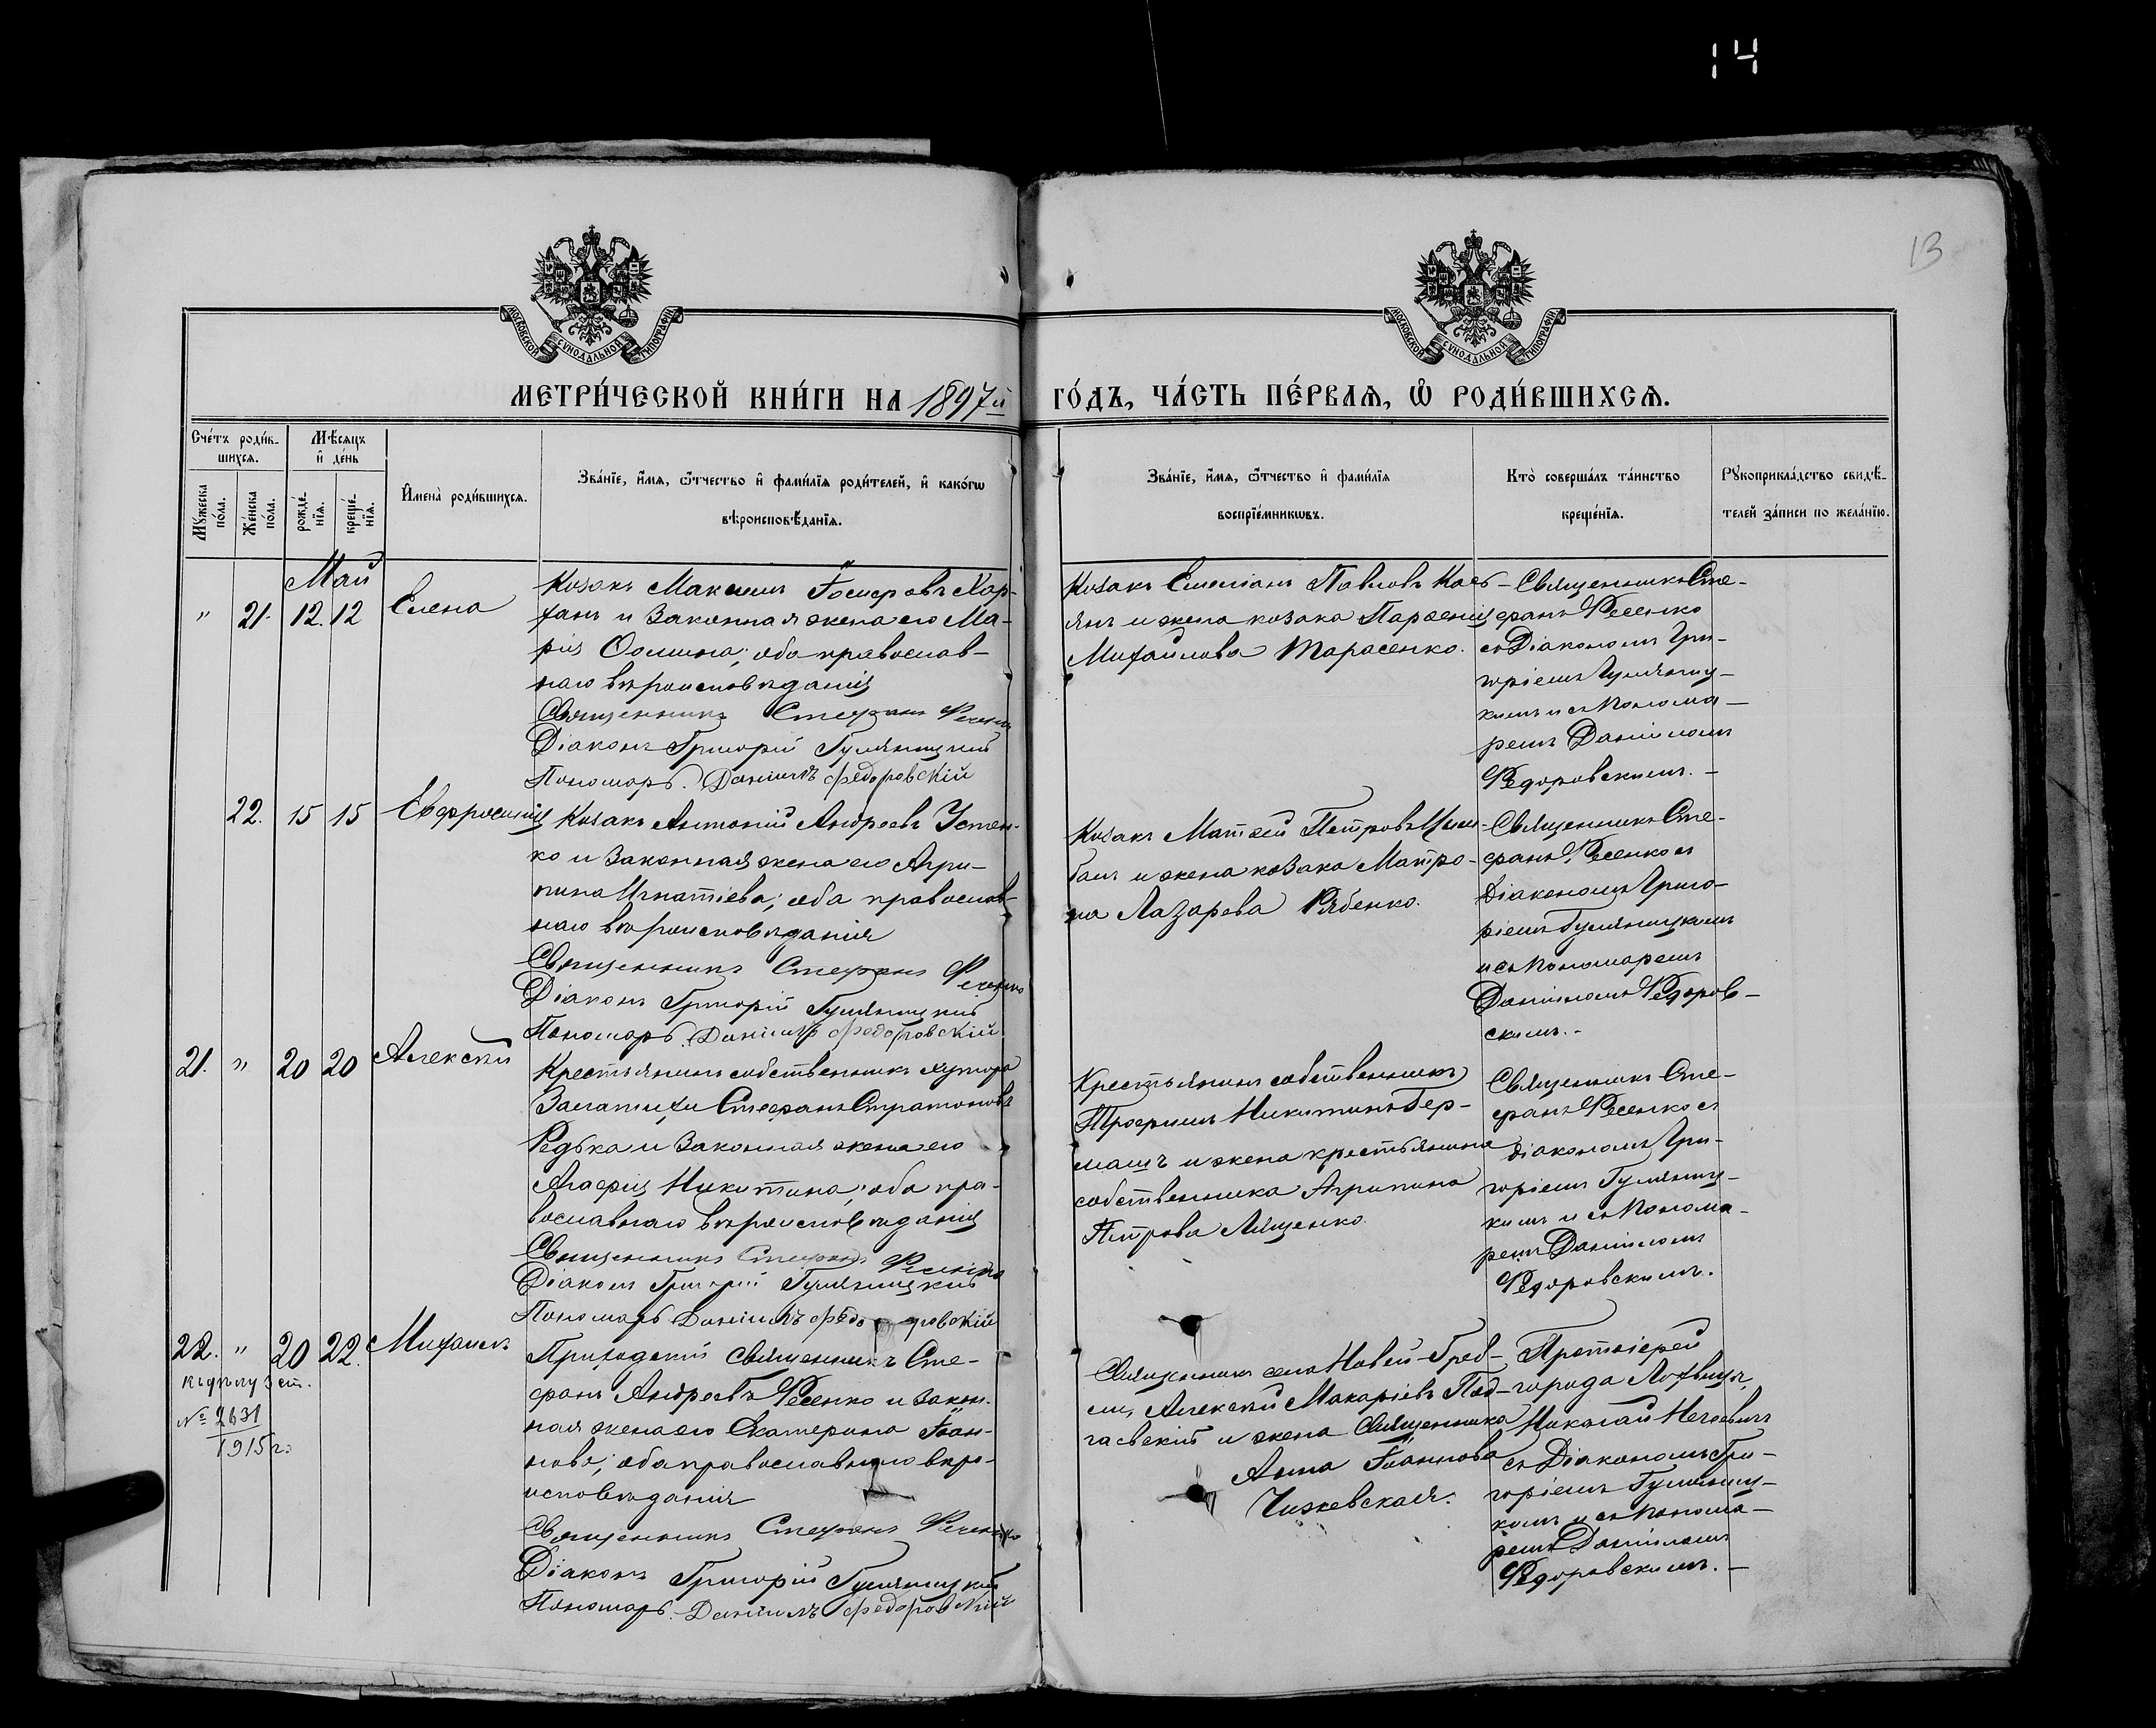 14
13
МОСКОВСКОЙ СѴНОДАЛЬНОЙ ТИПОГРАФІИ
МОСКОВСКОЙ СѴНОДАЛЬНОЙ ТИПОГРАФІИ
МЕТРИ́ЧЕСКОЙ КНИ́ГИ НА 1897й ГО́ДЪ, ЧА́СТЬ ПЕ́РВАѦ, Ѡ РОДИ́ВШИХСѦ.
Сче́тъ роди́в-
шихсѧ.
Мѣ́сѧцъ
и҆ де́нь
Мꙋ́жеска
по́ла.
Же́нска
по́ла.
рожде́-
нїѧ.
креще́-
нїѧ.
И҆мена̀ роди́вшихсѧ.
Зва́нїе, и҆́мѧ, ѻ҆́тчество и҆ фами́лїѧ роди́телей, и҆ како́гѡ
вѣроисповѣ́данїѧ.
Зва́нїе, и҆́мѧ, ѻ҆́тчество и҆ фами́лїѧ
воспрїе́мникѡвъ.
Кто̀ соверша́лъ та́инство
креще́нїѧ.
Рꙋкоприкла́дство свидѣ́-
телей за́писи по жела́нїю.
Май
" 21. 12. 12 Елена
Козакъ Максимъ Хар-
и законная жена его Ма-
рія Ѳомина; оба православ-
наго вѣроисповѣданія
Священникъ Стефанъ Фесенко
Діаконъ Григорій Гумяницкій
Пономарь Даніилъ Федоровскій
Козакъ Емиліанъ Павловъ Кась-
янъ и жена козака Парѳенія
Михайлова Тарасенко.
Священникъ Сте-
фанъ Фесенко
съ Діакономъ Гри-
горіемъ Гумяниц-
кимъ и съ Понома-
ремъ Даніиломъ
Федоровскимъ.
22. 15 15 Евфросинія
Козакъ Антоній Андреевъ Устен-
ко и законная жена его Агри-
пина Игнатіева; оба православ-
наго вѣроисповѣданія
Священникъ Стефанъ Фесенко
Діаконъ Григорій Гумяницкій
Пономарь Даніилъ Федоровскій
Козакъ Матѳей Петровъ Цым-
балъ и жена козака Матро-
на Лазарева Рябенко.
Священникъ Сте-
фанъ Фесенко съ
Діакономъ Григо-
ріемъ Гумяницкимъ
и съ Пономаремъ
Даніиломъ Федоров-
скимъ.-
21. " 20 20 Алексѣй
Крестьянинъ собственникъ хутора
Стефанъ Стратоновъ
Редька и законная жена его
Агафія Никитина; оба пра-
вославнаго вѣроисповѣданія
Священникъ Стефанъ Фесенко
Діаконъ Григорій Гумяницкій
Пономарь Даніилъ Федоровскій
Крестьянинъ собственникъ
Трофимъ Никитинъ Бер-
машъ и жена крестьянина
собственника Агрипина
Петрова Лященко.
Священникъ Сте-
фанъ Фесенко съ
діакономъ Гри-
горіемъ Гумяниц-
кимъ и съ Понома-
ремъ Даніиломъ
Федоровскимъ.
22. " 20 22. Михаилъ
Къ дѣлу 3 ст.
№ 2631
1915 г.
Приходскій священникъ Сте-
фанъ Андреевъ Фесенко и закон-
ная жена его Екатерина Іоан-
нова; оба православнаго вѣро-
исповѣданія
Священникъ Стефанъ Фесенко
Діаконъ Григорій Гумяницкій
Пономарь Даніилъ Федоровскій
Священникъ села Новой-Греб-
ли, Алексѣй Макаріевъ
и жена Священника
Анна Іоаннова
Чижевская.
Протоіерей
города Лохвицы,
Николай
съ Діакономъ Гри-
горіемъ Гумяниц-
кимъ и съ Понома-
ремъ Даніиломъ
Федоровскимъ.